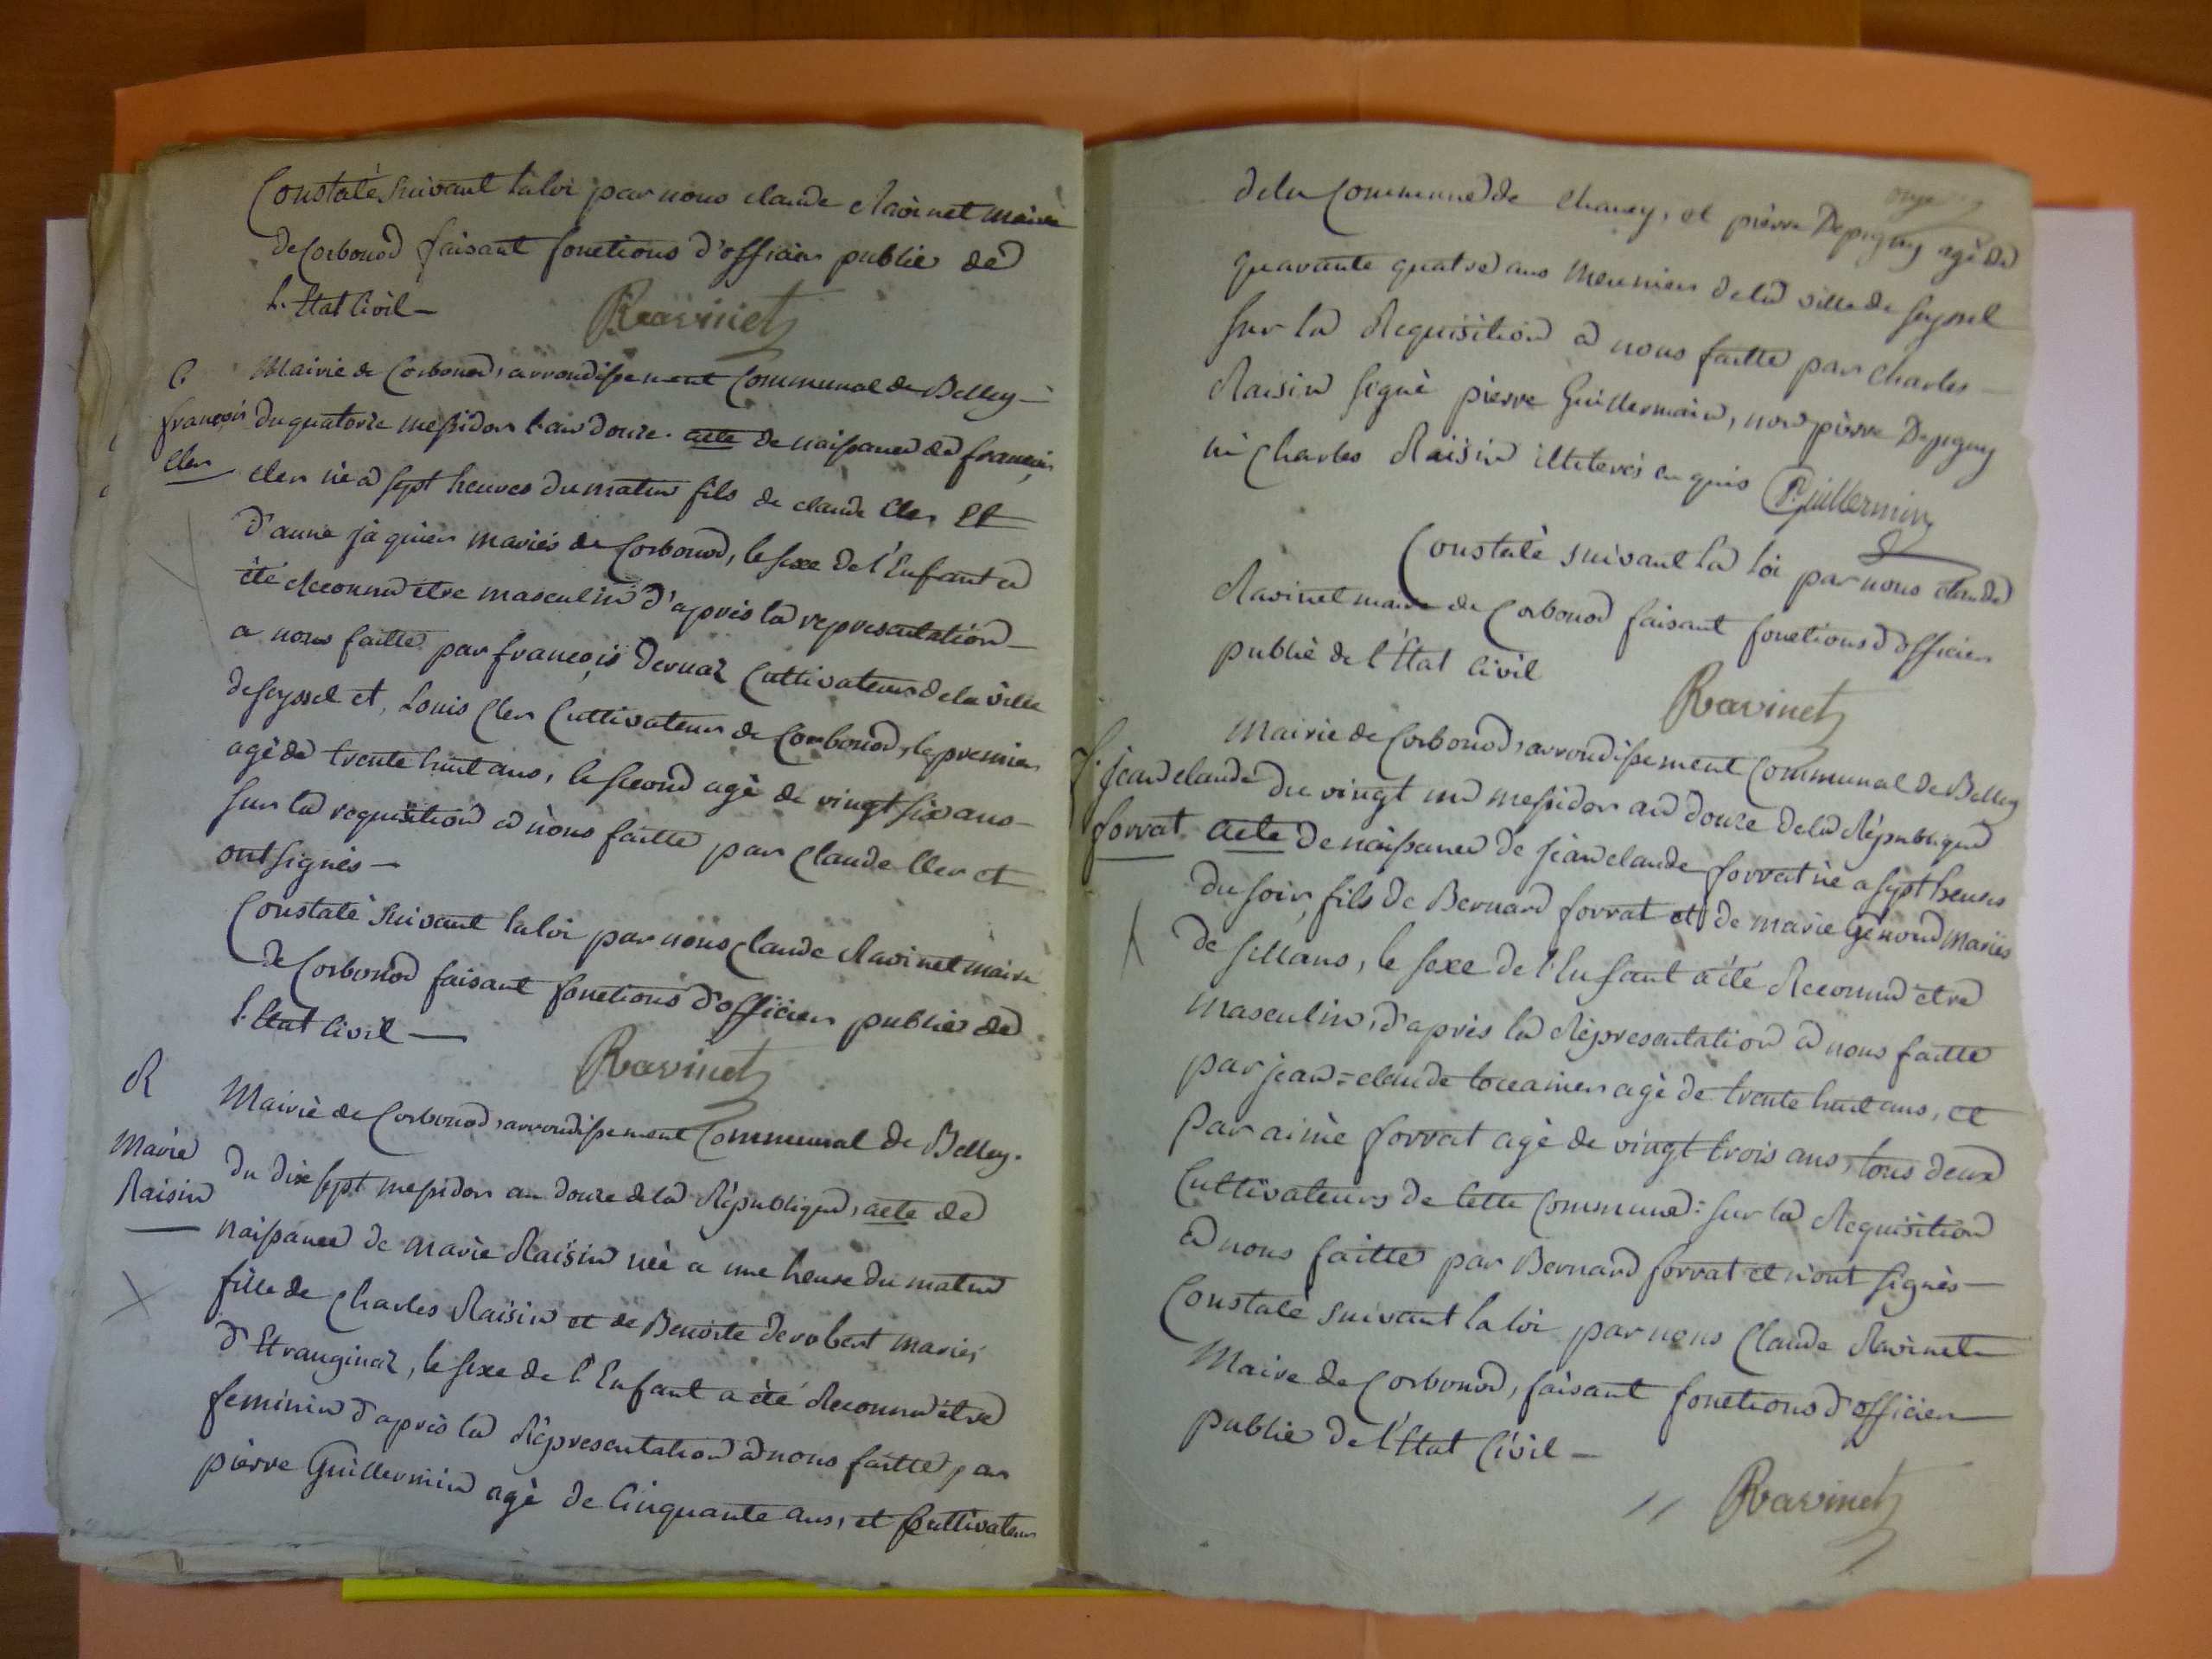 Constaté suivant la loi par nous claude Ravinet maire
de Corbonod faisant fonctions d'officier public de
l'Etat Civil —
Ravinet
C. Mairie de Corbonod, arrondissement Communal de Belley —
françois du quatorze messidor l'an douze. acte de naissance de françois
Cler cler né a sept heures du matin fils de claude Cler Et
d'anne jàquier mariés de Corbonod, le sexe de l'Enfant a
été Reconnu etre masculin d'après la representation —
a nous faitte par françois Dernaz Cultivateur de la ville
de seyssel et, Louis Cler Cultivateur de Corbonod, le premier
agé de trente huit ans, le second agé de vingt six ans —
sur la requisition a nous faitte par Claude Cler et
ont signés —
Constaté suivant la loi par nous Claude Ravinet maire
de Corbonod faisant fonctions d'officier public de
l'Etat Civil —
Ravinet
R Mairie de Corbonod, arrondissement Communal de Belley.
Marie du dix sept messidor an douze de la République, acte de
Raisin naissance de marie Raisin née a une heure du matin
fille de Charles Raisin et de Benoite Derobert mariés
d'Etranginaz, le sexe de l'Enfant a été Reconnu être
feminin d'après la Répresentation a nous faitte par
pierre Guillermin agé de Cinquante ans, et Cultivateur
onze
de la Commune de Chanay, et pierre Depigny agé de
quarante quatre ans meunier de la ville de seyssel
sur la Requisition a nous faitte par Charles —
Raisin signé pierre Guillermain, non pierre Depigny
ni Charles Raisin illiterés enquis P. guillermin
Constaté suivant la loi par nous claude
Ravinet maire de Corbonod faisant fonctions d'officier
public de l'Etat Civil
Ravinet
Mairie de Corbonod, arrondissement Communal de Belley
f. jean claude du vingt un messidor an douze de la République
forrat acte de naissance de jean claude forrat né a sept heures
du soir, fils de Bernard forrat et de marie Genoud mariés
de sillans, le sexe de l'Enfant a été Reconnu etre
masculin, d'après la Répresentation a nous faitte
par jean=claude agé de trente huit ans, et
par aimé forrat agé de vingt trois ans, tous deux
Cultivateurs de Cette Commune: sur la Requisition
a nous faitte par Bernard forrat et n'ont signés —
Constaté suivant la loi par nous Claude Ravinet
Maire de Corbonod, faisant fonctions d'officier
public de l'Etat Civil —
Ravinet